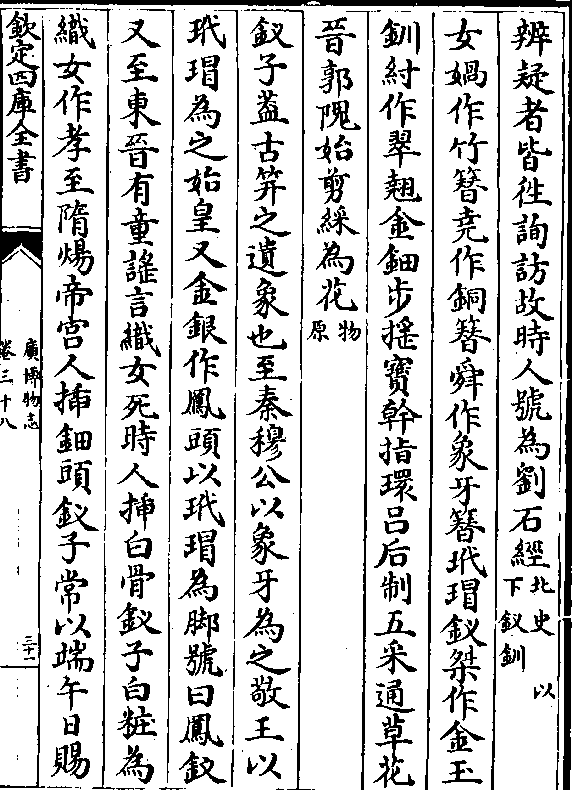 辨疑者皆徃詢訪故時人號為劉石經北史 以下釵釧
女媧作竹簮堯作銅簮舜作象牙簮玳瑁釵桀作金玉
釧紂作翠翹金鈿步揺寳幹指環吕后制五采通草花
晉郭隗始剪綵為花物原
釵子葢古笄之遺象也至秦穆公以象牙為之敬王以
玳瑁為之始皇又金銀作鳳頭以玳瑁為脚號曰鳳釵
又至東晉有童謡言織女死時人挿白骨釵子白粧為
織女作孝至隋煬帝宫人挿鈿頭釵子常以端午日賜
欽定四庫全書
廣博物志
卷三十八
三十一